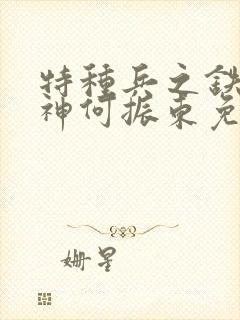 特种兵之铁
神何振东免
姗星